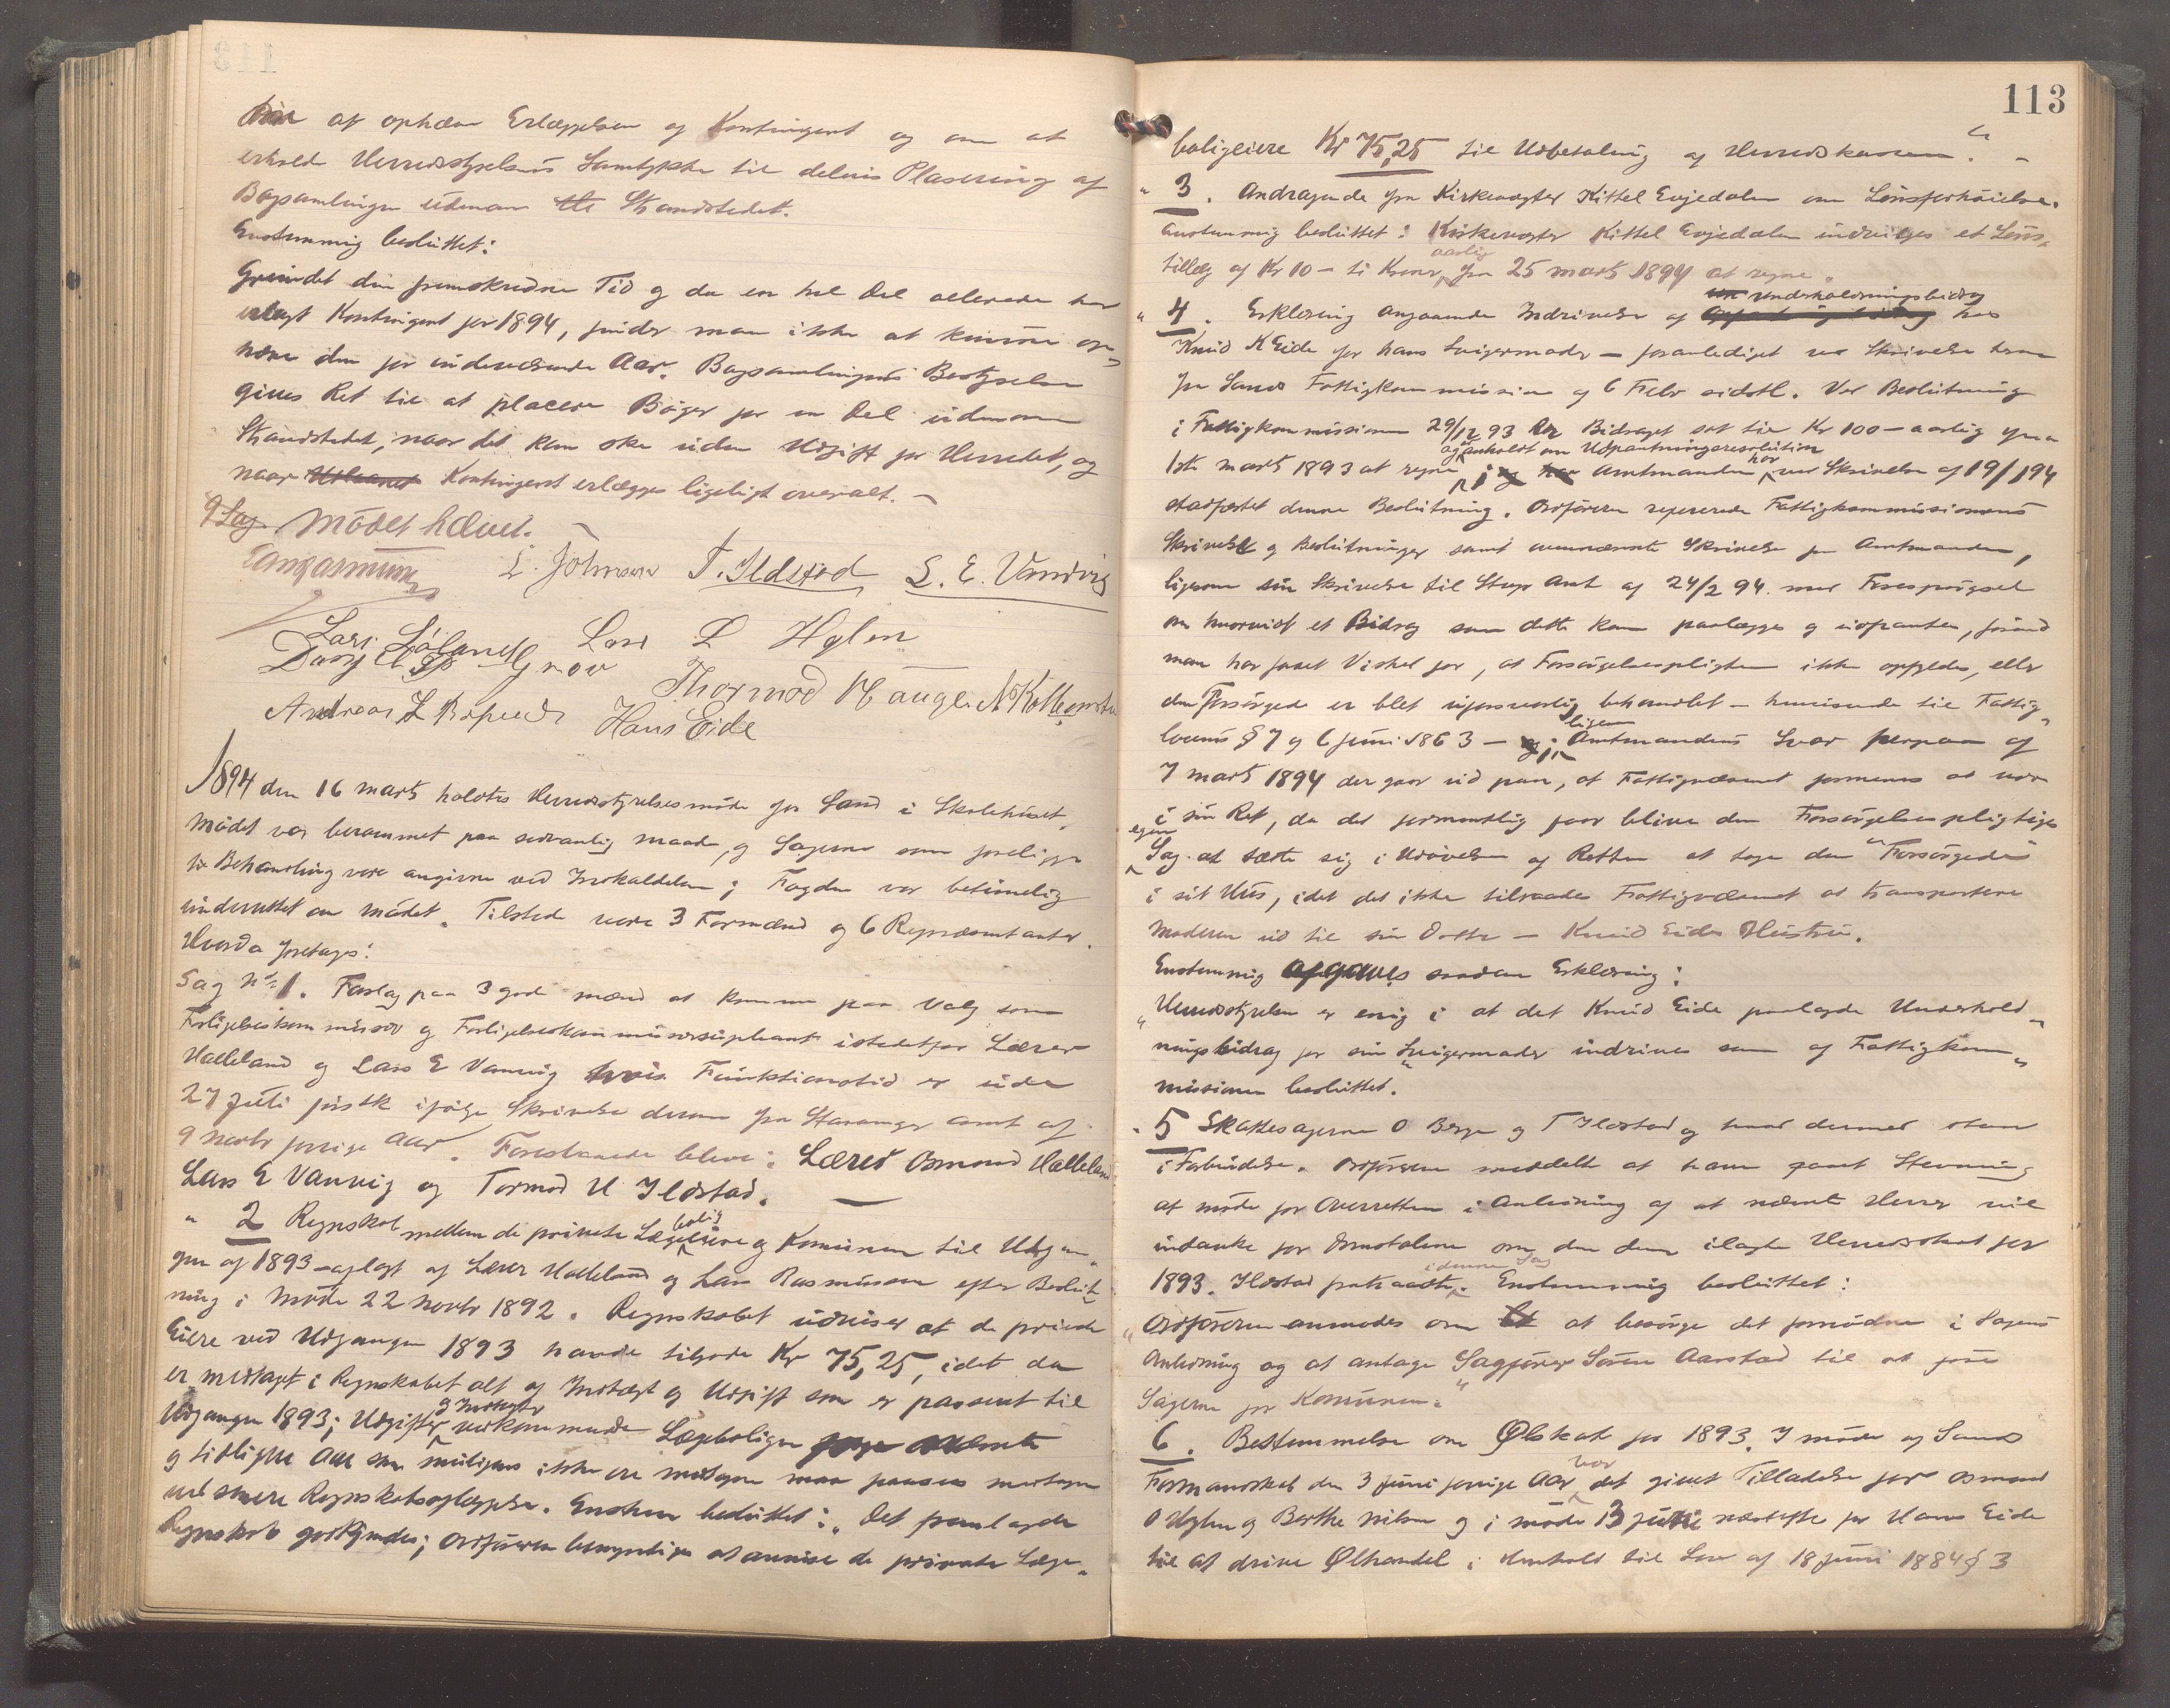 at ophæve Erlæggelsen af Kontingent og om at
erholde Herredsstyrelsens Samtykke til delvis Plasering af
Bogsamlingen udenom Strandstedet.
Enstemmig besluttet:
Grundet den fremskredne Tid og da en hel Del allerede har
erlagt Kontingent for 1894, finder man ikke at kunne op-
hæve den for indeværende Aar. Bogsamlingens Bestyrelse
gives Ret til at placere Bøger for en Del udenom
Strandstedet, naar det kan ske uden Udgift for Herredet, og
naar Kontingent erlægges ligeligt overalt. —
9 Sag Mødet hævet.
L. Johnsen T. Ildstad L. E. Vanvig
Lars Løland Lars L Hylen
Grov Thormod Hauge N Kolbenstv
Andreas L Hans Eide
1894 den 16 marts holdtes Herredsstyrelsesmøde for Sand i Skolehuset,
Mødet var berammet paa sedvanlig maade, og Sagerne som foreligger
til Behandling vare angivne ved Indkaldelsen; Fogden var betimelig
underrettet om mødet. Tilstede vare 3 Formænd og 6 Repræsentanter.
Hvorda foretages:
Sag No 1. Forslag paa 3 gode mænd at komme paa Valg som
Forligelseskommissær og Forligelseskommissærsupleant istedetfor Lærer
Halleland og Lars E Vanvig hvis Funktionstid er ude
27 Juli førstk ifølge Skrivelse derom fra Stavanger Amt af
9 Novbr forrige Aar. Foreslaaede bleve: Lærer Osmond Halleland
Lars E Vanvig og Tormod H Ildstad. —
" 2 Regnskab mellem de private Lægeboligeiere og Komunen til Udgan-
gen af 1893 aflagt af Lærer Halleland og Lars Rasmussen efter Beslut-
ning i Møde 22 Novbr 1892. Regnskabet udviser at de private
Eiere ved Udgangen 1893 havde tilgode Kr 75,25, idet da
er medtaget i Regnskabet alt af Indtægt og Udgift som er passeret til
Udgangen 1893; Udgifter og Indtægter vedkommende Lægeboligen
og tidligere Aar som muligens ikke ere medtagne maa paases medtagne
ved senere Regnskabsaflæggelse. Enstem besluttet: "Det fremlagde
Regnskab godkjendes; Ordføreren bemyndiges at anvise de private Læge-
113
boligeiere Kr 75,25 til Udbetaling af Herredskassen." —
" 3. Andragende fra Kirkeværger Kittel Evjedalen om Lønsforhøielse.
Enstemmig besluttet: Kirkeværger Kittel Evjedalen indvilges et Løns-
tillæg af Kr 10 — ti Kroner aarlig fra 25 marts 1894 at regne.
" 4. Erklæring angaaende Indrivelse af Underholdningsbidrag hos
Knud K Eide for hans Svigermoder — foranlediget ved Skrivelse herom
fra Sands Fattigkommission af 6 Febr sidstl. Ved Beslutning
i Fattigkommissionen 29/12 93 er Bidraget sat til Kr 100 — aarlig fra
1ste marts 1893 at regne og anholdt om Udpantningsresolution Amtmanden har ved Skrivelse af 19/1 94
stadfæstet denne Beslutning. Ordføreren refererede Fattigkommissionens
Skrivelse og Beslutninger samt ovennævnte Skrivelse fra Amtmanden,
ligesom sin Skrivelse til Stvgr Amt af 24/2 94 med Forespørgsel
om hvorvidt et Bidrag som dette kan paalægges og udpantes, førend
man har faaet Vished for, at Forsørgelsespligten ikke opfyldes, eller
den Forsørgede er blet uforsvarlig behandlet — henvisende til Fattig-
lovens § 7 af 6 Juni 1863 — ligesom Amtmandens Svar herpaa af
7 marts 1894 der gaar ud paa, at Fattigvæsenet formenes at være
i sin Ret, da det formentlig faar blive den Forsørgelsespligtiges
egen Sag at sætte sig i Udøvelse af Retten at tage den "Forsørgede"
i sit Hus, idet det ikke tilraades Fattigvæsenet at transportere
Moderen ud til sin Datter — Knud Eides Hustru.
Enstemmig afgaves saadan Erklæring:
"Herredsstyrelsen er enig i at det Knud Eide paalagde Underhold-
ningsbidrag for sin Svigermoder indrives som af Fattigkom-
missionen besluttet."
" 5 Skattesagerne O Berge og T Ildstad og hvad dermed staar
i Forbindelse. Ordføreren meddelte at have faaet Stevning
at møde for Overretten i Anledning af at nævnte Herrer vil
indanke for Domstolene om den dem ilagte Herredsskat for
1893. Ildstad fratraadte i denne Sag. Enstemmig besluttet:
"Ordføreren anmodes om at besørge det fornødne i Sagens
Anledning og at antage Sagfører Søren Aarstad til at føre
Sagerne for Komunen."
6. Bestemmelse om Ølskat for 1893. I møde af Sands
Formandskab den 3 Juni forrige Aar har det givet Tilladelse for Osmond
O Hylen og Berthe Nilsen og i møde 13 Juni næstefter for Hans Eide
til at drive Ølhandel i Henhold til Lov af 18 Juni 1884 § 3